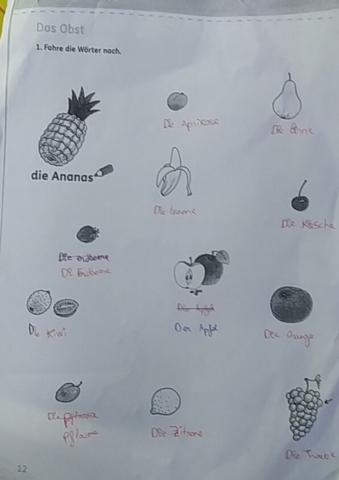 Das Obst
1. Fahre die Wörter nach.
Die Aprikose
Die Birne
die Ananas
Die banane
Die Kirsche
Die erdbeere
Die Erdbeere
Die Apfel
Der Apfel
Die Kiwi
Die Orange
Die
pflaume
Die Zitrone
Die Traube
12